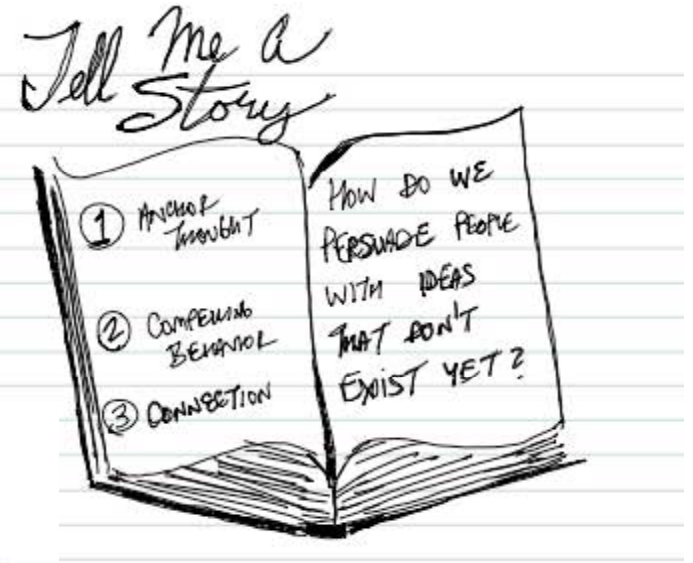 Tell Me A
Story
1 ANCHOR
THOUGHT
2 COMPELLING
BEHAVIOR
3 CONNECTION
HOW DO WE
PERSUADE PEOPLE
WITH IDEAS
THAT DON'T
EXIST YET?